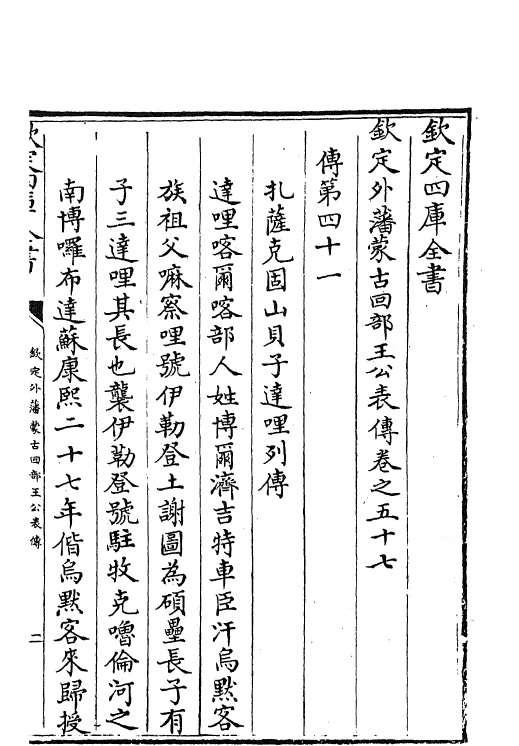 欽定四庫全書
欽定外藩蒙古回部王公表傳卷之五十七
傳第四十一
扎薩克固山貝子達哩列傳
達哩喀爾喀部人姓博爾濟吉特車臣汗烏默客
族祖父嘛察哩號伊勒登土謝圖為碩壘長子有
子三達哩其長也襲伊勒登號駐牧克嚕倫河之
南博囉布達蘇康熙二十七年偕烏默客來歸授
欽定外藩蒙古回部王公表傳
二